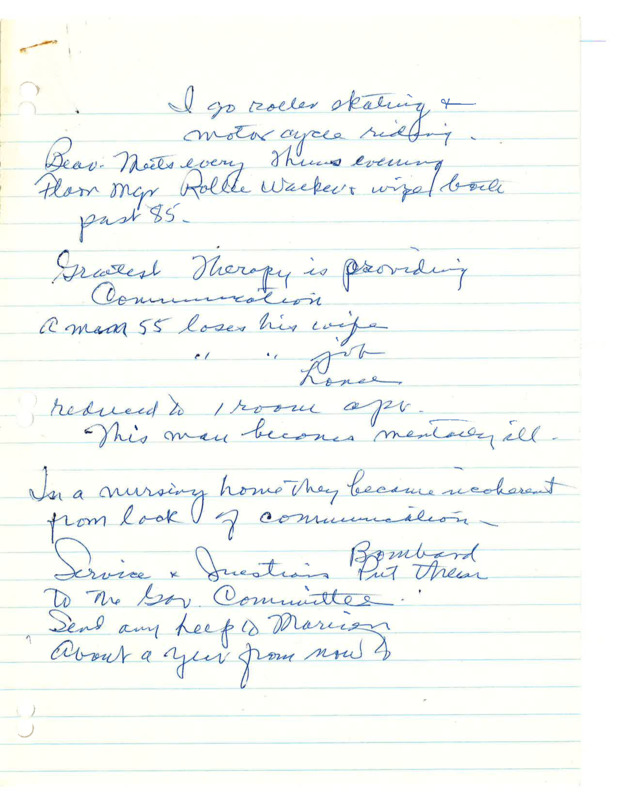 I go roller skating +
motor cycle riding.
Beav. Meets every Thurs evening
Floor Mgr Rollie Walker + wife both
past 85.
Greatest Therapy is providing
Communication
A man 55 loses his wife
" " job
home
reduced to 1 room apt.
This man becomes mentally ill.
In a nursing home they became incoherent
from lack of communication -
Service + Questions Bombard
Put them
To the Gov. Committee.
Send any help to
About a year from now